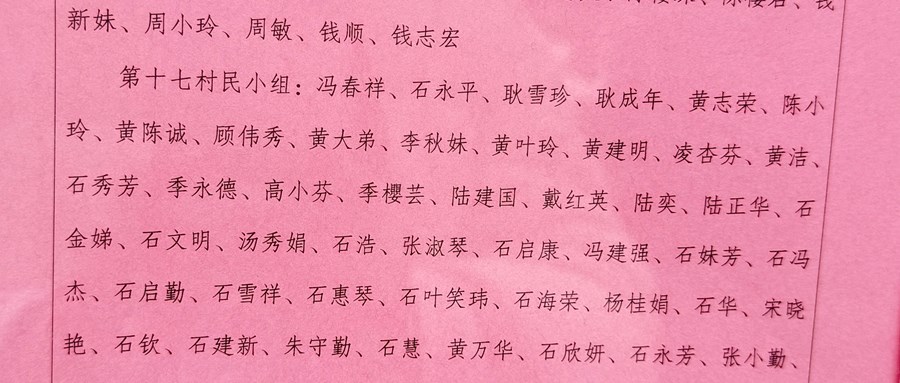 新妹、周小玲、周敏、钱顺、钱志宏
第十七村民小组：冯春祥、石永平、耿雪珍、耿成年、黄志荣、陈小
玲、黄陈诚、顾伟秀、黄大弟、李秋妹、黄叶玲、黄建明、凌杏芬、黄洁、
石秀芳、季永德、高小芬、季樱芸、陆建国、戴红英、陆奕、陆正华、石
金娣、石文明、汤秀娟、石浩、张淑琴、石启康、冯建强、石妹芳、石冯
杰、石启勤、石雪祥、石惠琴、石叶笑玮、石海荣、杨桂娟、石华、宋晓
艳、石钦、石建新、朱守勤、石慧、黄万华、石欣妍、石永芳、张小勤、